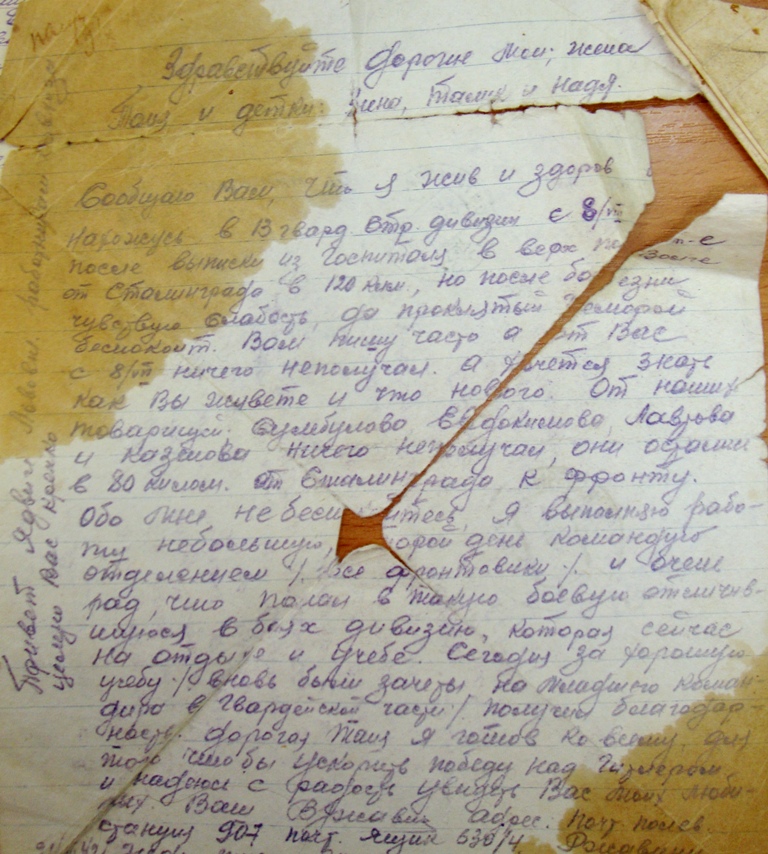 Здравствуйте дорогие мои, жена
Таня и детки: Нина, Талик и Надя.
Сообщаю Вам, что я жив и здоров
нахожусь в 13 гвард стр. дивизии с 8/
после выписки из госпиталя в верх
от Сталинграда в 120 клм, но после болезни
чувствую слабость, да проклятый геморой
беспокоит. Вам пишу часто а от Вас
с 8/ ничего неполучал. а хочется знать
как Вы живете и что нового. От наших
товарищей Сумбулово Евдокимова, Лаврова
и Казакова ничего неполучал, они остались
в 80 килом. от Сталинграда к фронту.
Обо мне не бес йтесь, я выполняю рабо-
ту небольшую, торой день командую
отделением /. все фронтовики ./ и очень
рад, что попал в такую боевую отличив-
шуюся в боях дивизию, которая сейчас
на отдыхе и учебе. Сегодня за хорошую
учебу ./ вновь были зачеты на младшего коман-
дира в гвардейской части / получил благодар-
ность. Дорогая Таня я готов ко всему для
того чтобы ускорить победу над Гитлером
и надеюсь с радость увидеть Вас моих люби-
мых. Ваш Вржавин адрес. почт. полев.
станция 907 почт. ящик 630/4 Ржавин
Привет работникам
целую Вас крепко